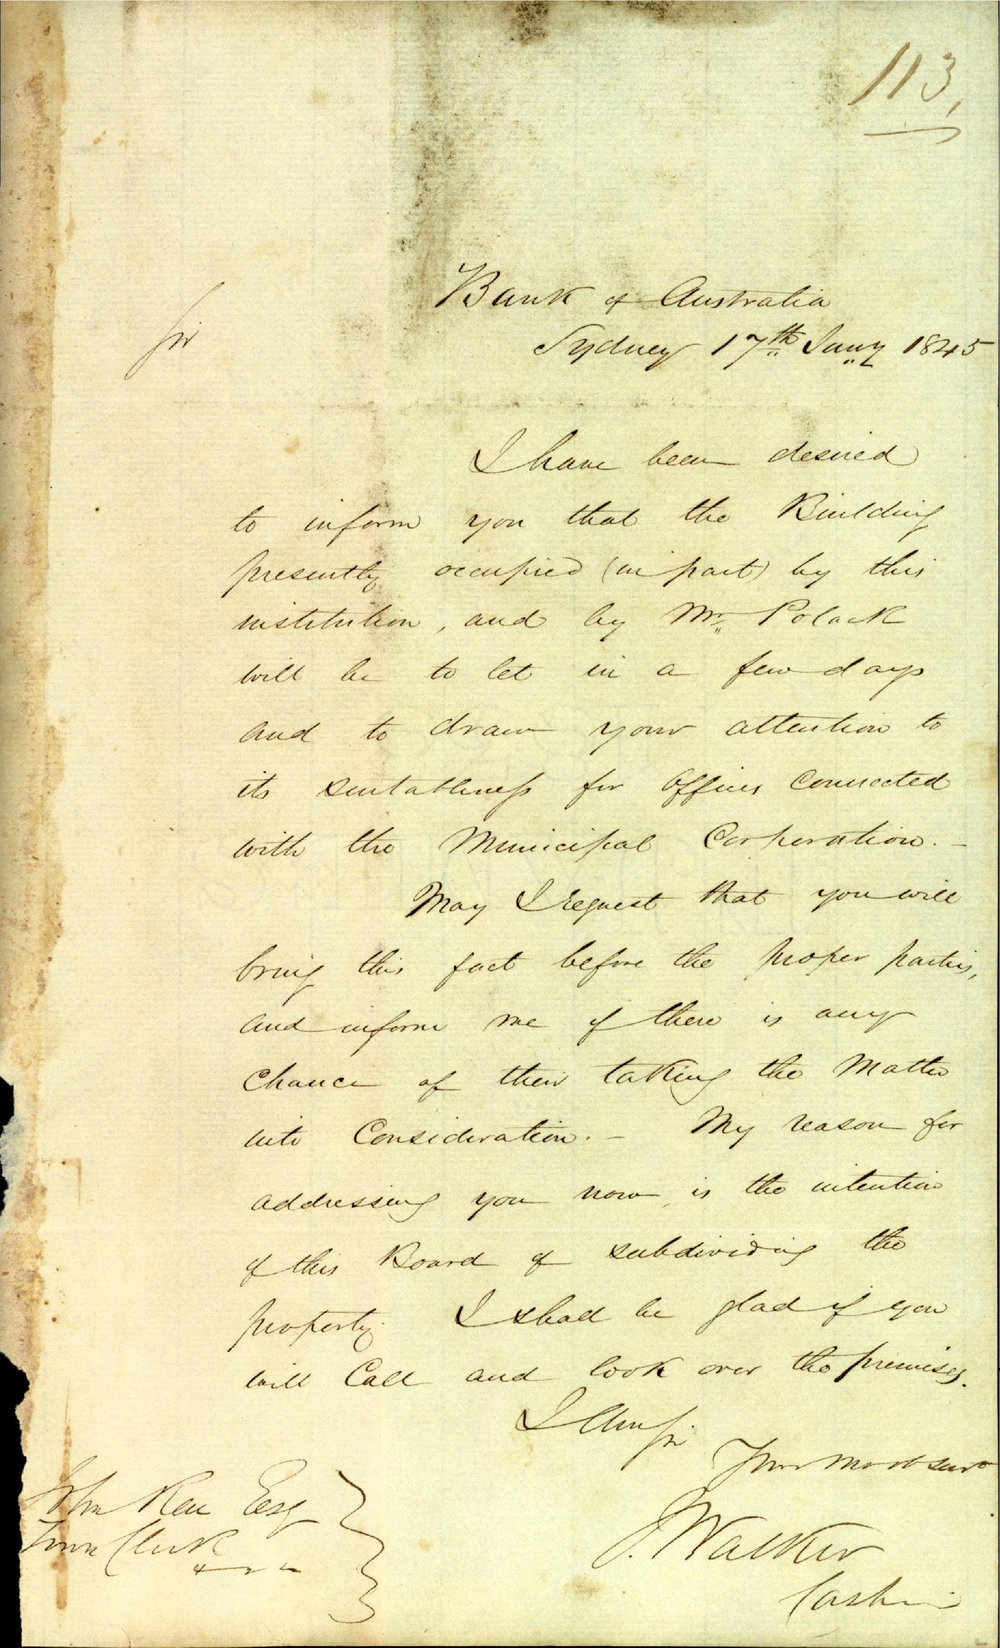 113,
Bank of Australia
Sydney 17th Jany 1845
Sir
I have been desired
to inform you that the Building
presently occupied (in part) by this
institution, and by Mr. Polack
will be to let in a few days
and to draw your attention to
its suitableness for Offices Connected
with the Municipal Corporation. -
May I request that you will
bring this fact before the proper parties,
and inform me if there is any
Chance of their taking the Matter
into Consideration. - My reason for
addressing you now, is the intention
of this Board of subdividing the
property. I shall be glad if you
will Call and look over the premises.
I am Sir
Your Most Servt
J. Walker
Cashier
John Rae Esq
Town Clerk